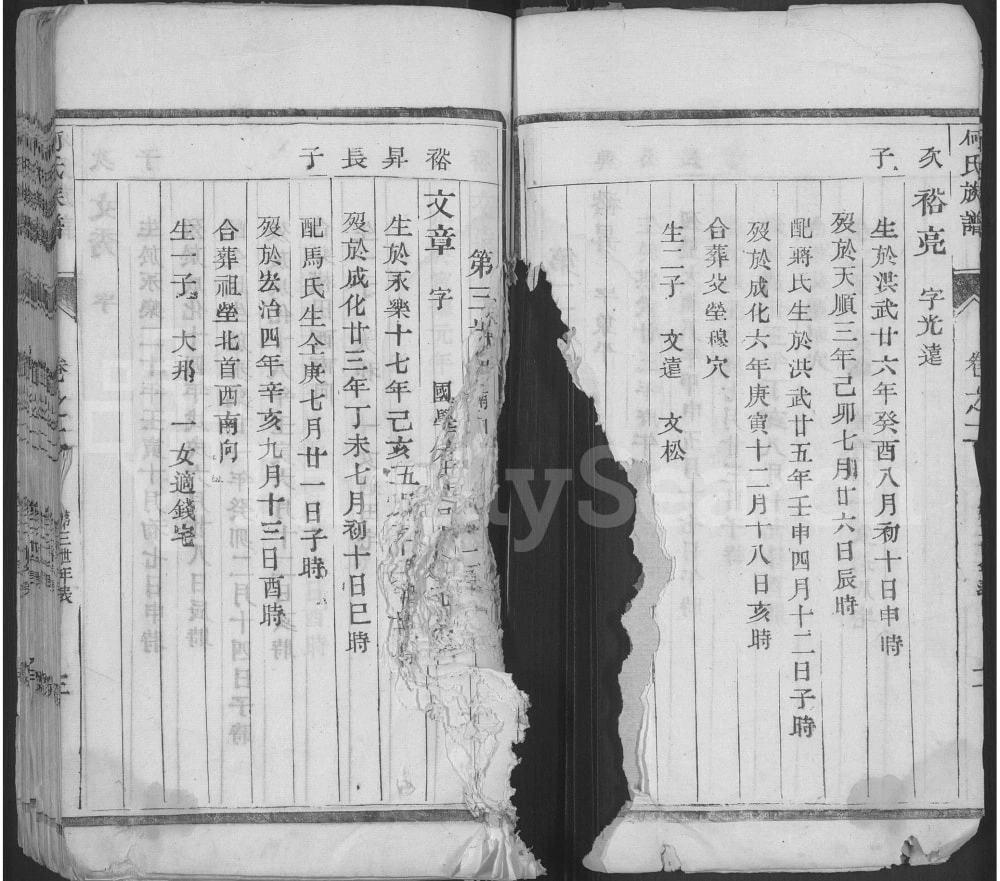 何氏族譜
卷之二
次子
裕亮 字光遠
生於洪武廿六年癸酉八月初十日申時
歿於天順三年己卯七月廿六日辰時
配蔣氏生於洪武廿五年壬申四月十二日子時
歿於成化六年庚寅十二月十八日亥時
合葬父塋穆穴
生二子 文遠 文松
第三
裕昇長子
文章 字 國學
生於永樂十七年己亥五
歿於成化廿三年丁未七月初十日巳時
配馬氏生仝庚七月廿一日子時
歿於宏治四年辛亥九月十三日酉時
合葬祖塋北首酉南向
生一子 大邦 一女適錢宅
何氏族譜
卷之二
第三世年表
三